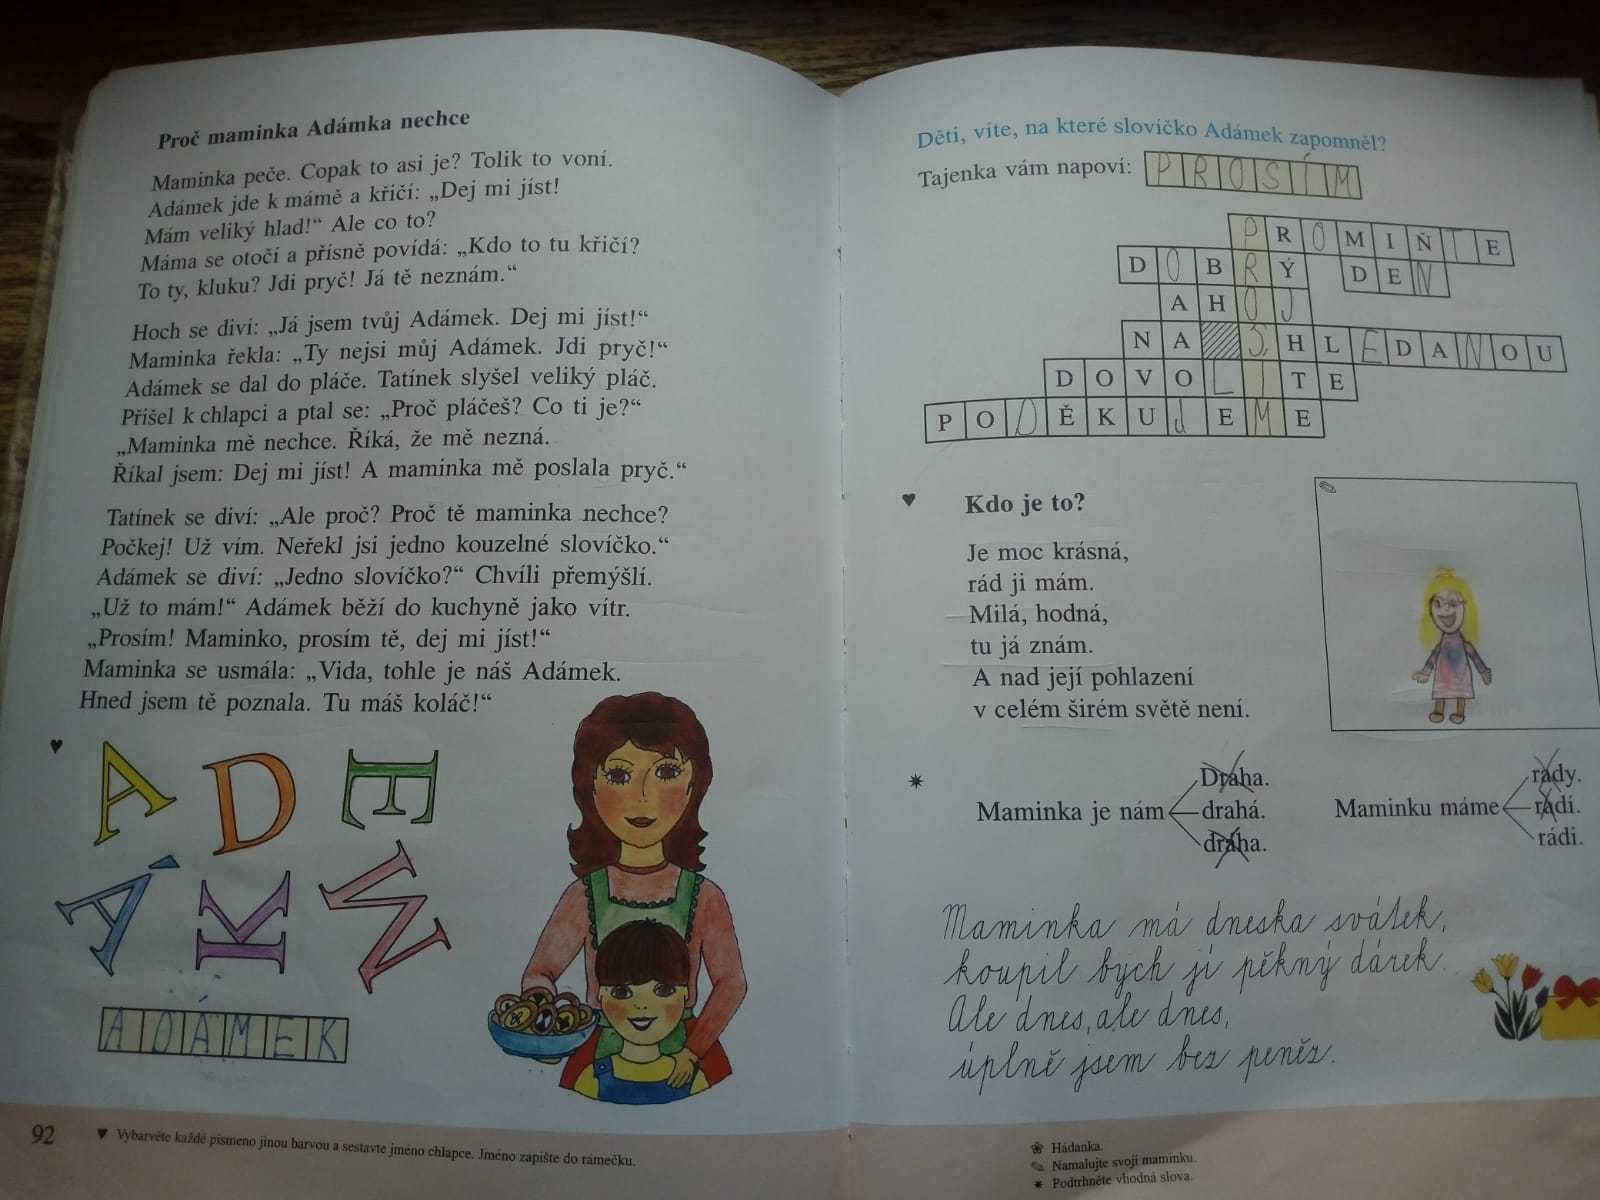 Proč maminka Adámka nechce
Maminka peče. Copak to asi je? Tolik to voní.
Adámek jde k mámě a křičí: „Dej mi jíst!
Mám veliký hlad!“ Ale co to?
Máma se otočí a přísně povídá: „Kdo to tu křičí?
To ty, kluku? Jdi pryč! Já tě neznám.“
Hoch se diví: „Já jsem tvůj Adámek. Dej mi jíst!“
Maminka řekla: „Ty nejsi můj Adámek. Jdi pryč!“
Adámek se dal do pláče. Tatínek slyšel veliký pláč.
Přišel k chlapci a ptal se: „Proč pláčeš? Co ti je?“
„Maminka mě nechce. Říká, že mě nezná.
Říkal jsem: Dej mi jíst! A maminka mě poslala pryč.“
Tatínek se diví: „Ale proč? Proč tě maminka nechce?
Počkej! Už vím. Neřekl jsi jedno kouzelné slovíčko.“
Adámek se diví: „Jedno slovíčko?“ Chvíli přemýšlí.
„Už to mám!“ Adámek běží do kuchyně jako vítr.
„Prosím! Maminko, prosím tě, dej mi jíst!“
Maminka se usmála: „Vida, tohle je náš Adámek.
Hned jsem tě poznala. Tu máš koláč!“
A D E
Á K M
ADÁMEK
92
Vybarvěte každé písmeno jinou barvou a sestavte jméno chlapce. Jméno zapište do rámečku.
Děti, víte, na které slovíčko Adámek zapomněl?
Tajenka vám napoví: PROSÍM
PROMIŇTE
DOBRÝ DEN
AHOJ
NA SHLEDANOU
DOVOLITE
PODĚKUJEME
Kdo je to?
Je moc krásná,
rád ji mám.
Milá, hodná,
tu já znám.
A nad její pohlazení
v celém širém světě není.
Maminka je nám
Draha.
drahá.
dráha.
Maminku máme
rády.
rádí.
rádi.
Maminka má dneska svátek,
koupil bych jí pěkný dárek.
Ale dnes, ale dnes,
úplně jsem bez peněz.
Hádanka.
Namalujte svoji maminku.
Podtrhněte vhodná slova.